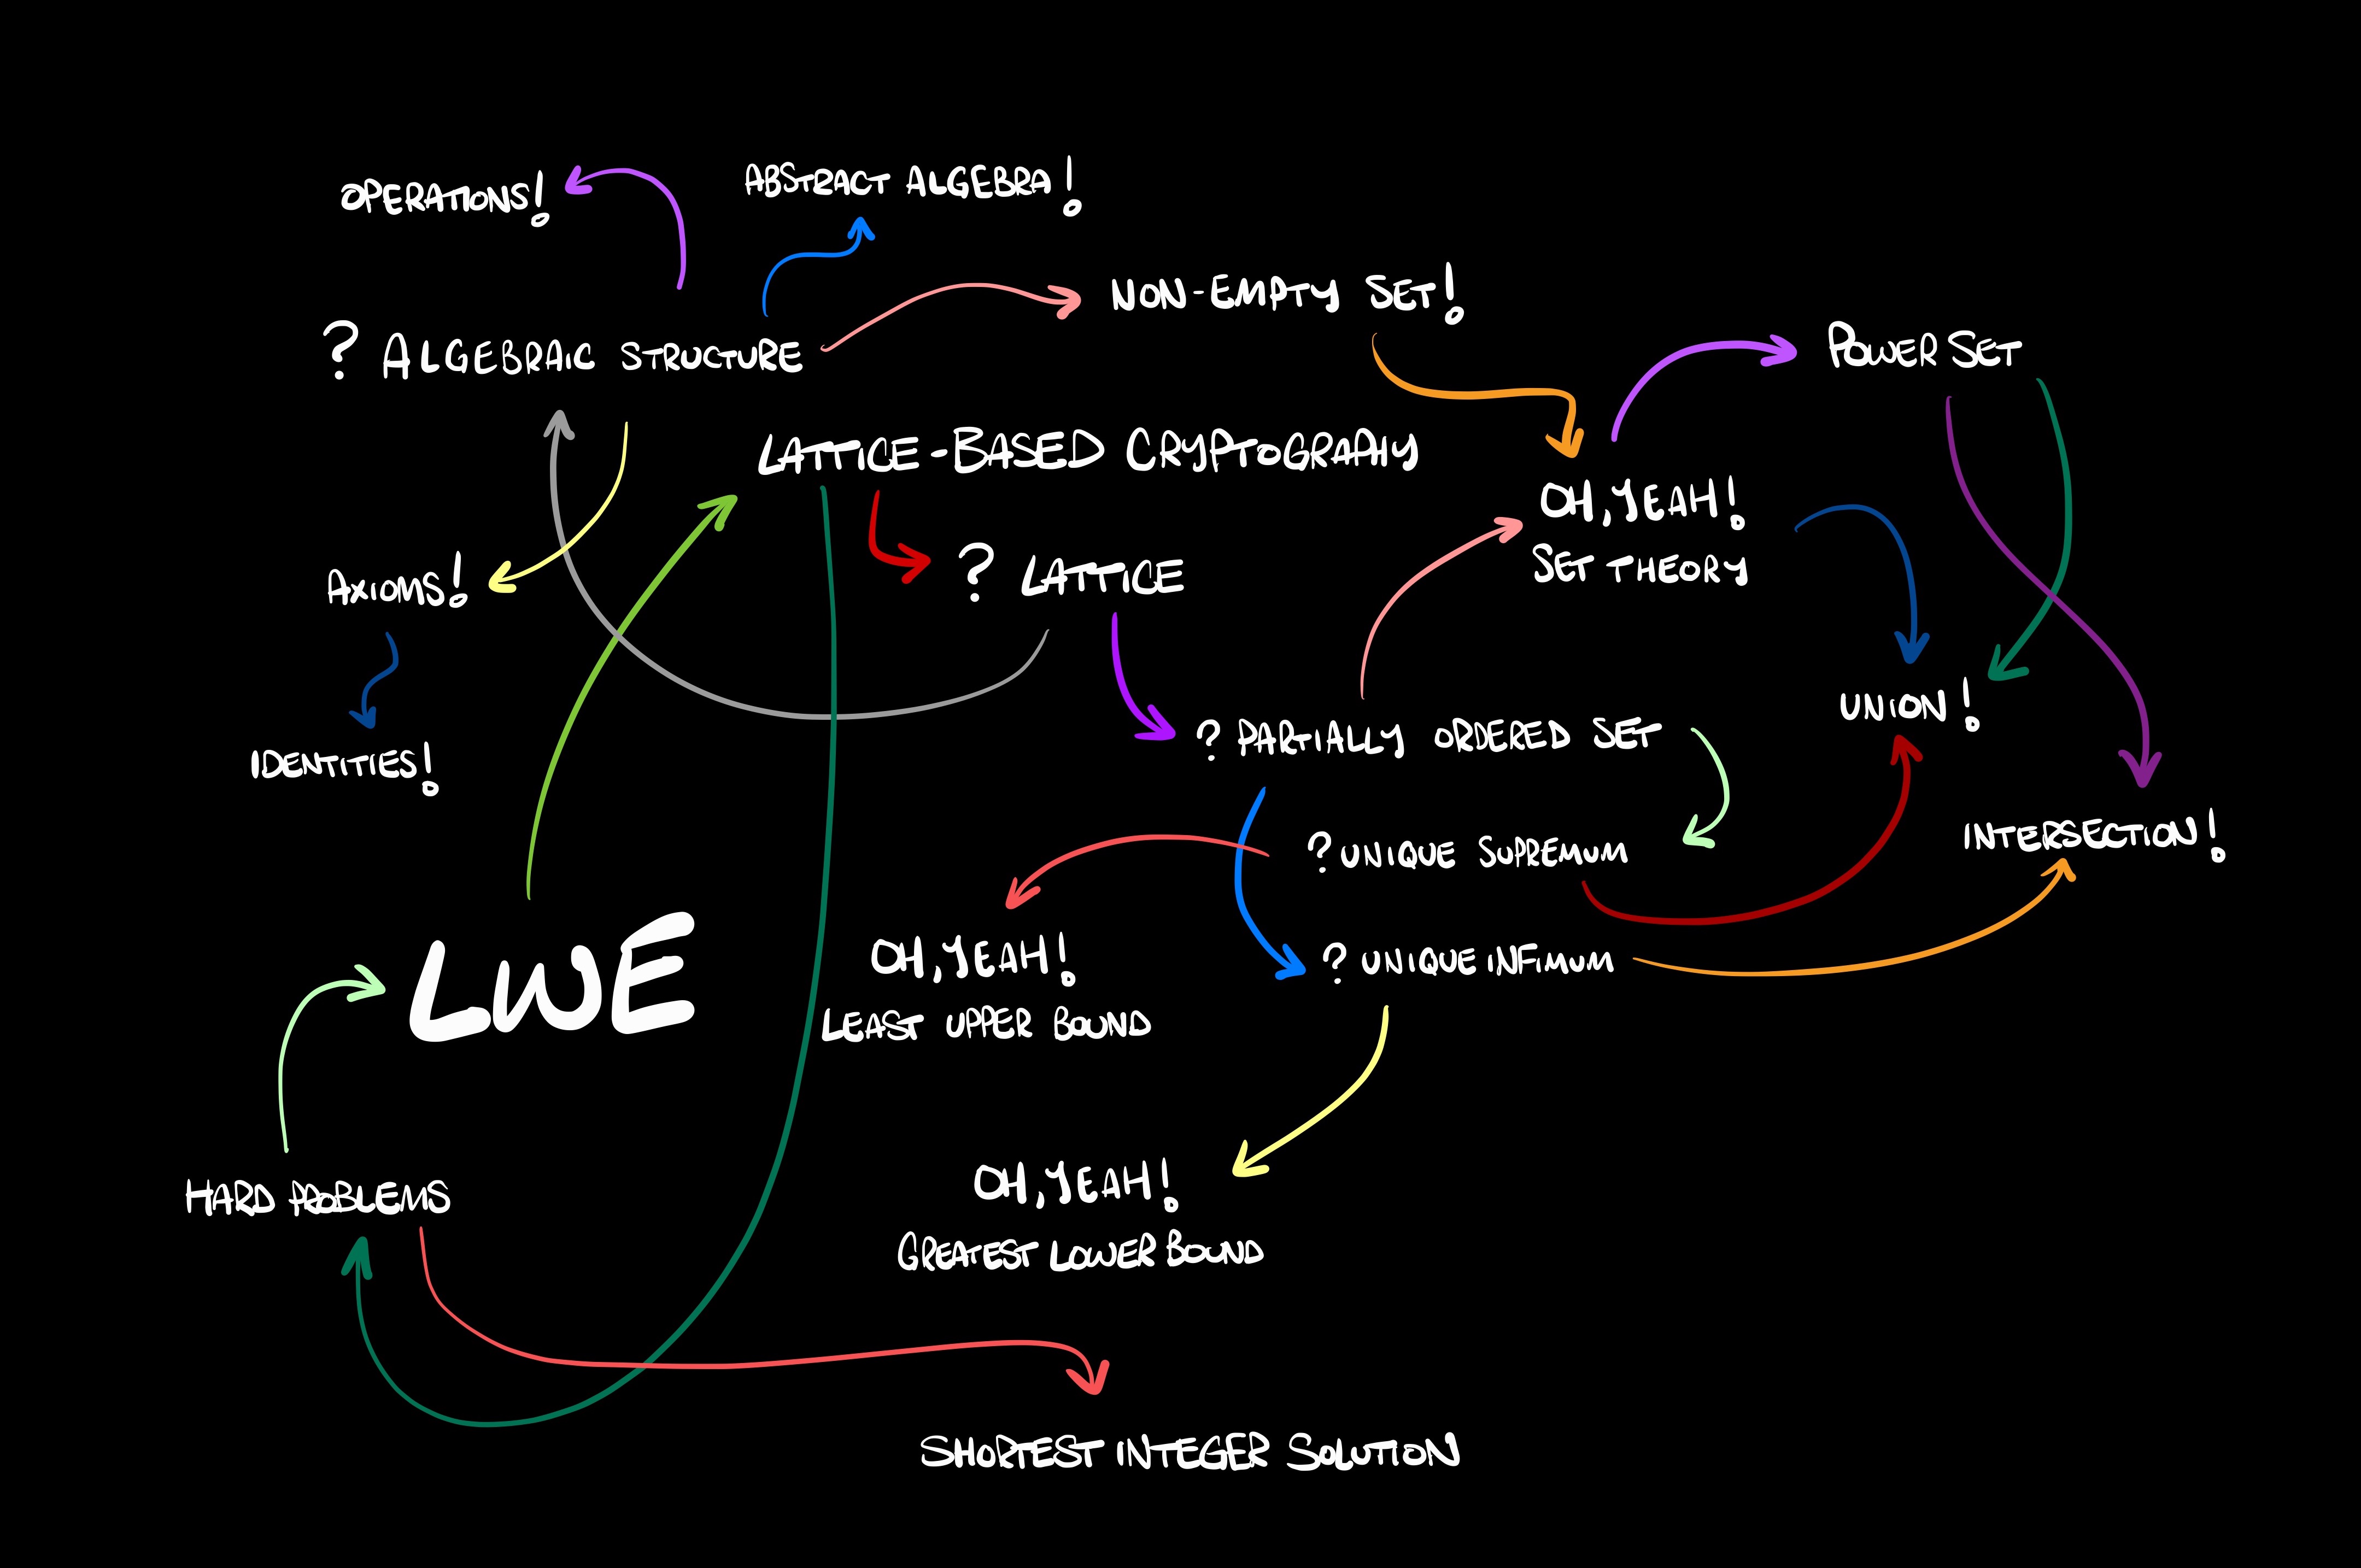 OPERATIONS!
ABSTRACT ALGEBRA!
NON-EMPTY SET!
? ALGEBRAIC STRUCTURE
POWER SET
LATTICE-BASED CRYPTOGRAPHY
OH, YEAH!
SET THEORY
AXIOMS!
? LATTICE
UNION!
? PARTIALLY ORDERED SET
IDENTITIES!
? UNIQUE SUPREMUM
INTERSECTION!
LWE
OH, YEAH!
LEAST UPPER BOUND
? UNIQUE INFIMUM
HARD PROBLEMS
OH, YEAH!
GREATEST LOWER BOUND
SHORTEST INTEGER SOLUTION